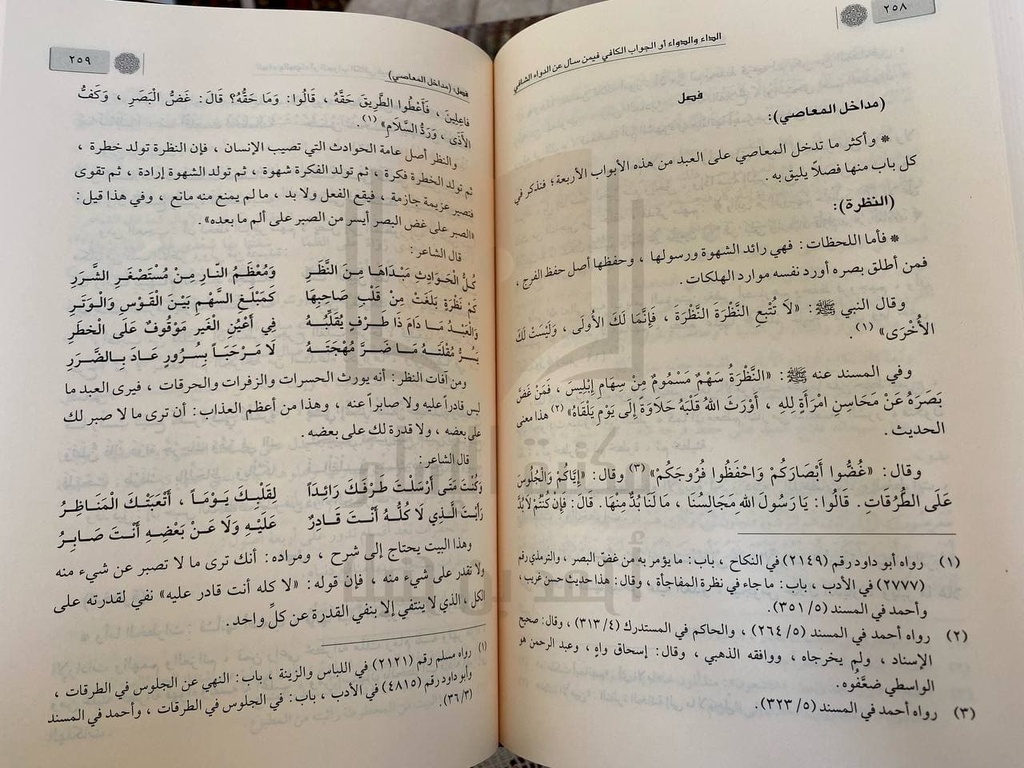 ٢٥٨
الداء والدواء أو الجواب الكافي فيمن سأل عن الدواء الشافي
فصل
(مداخل المعاصي):
* وأكثر ما تدخل المعاصي على العبد من هذه الأبواب الأربعة؛ فنذكر في
كل باب منها فصلاً يليق به.
(النظرة):
* فأما اللحظات: فهي رائد الشهوة ورسولها، وحفظها أصل حفظ الفرج،
فمن أطلق بصره أورد نفسه موارد الهلكات.
وقال النبي ﷺ: «لاَ تُتْبِعِ النَّظْرَةَ النَّظْرَةَ، فَإِنَّمَا لَكَ الأُولَى، وَلَيْسَتْ لَكَ
الأُخْرَى» (١).
وفي المسند عنه ﷺ: «النَّظْرَةُ سَهْمٌ مَسْمُومٌ مِنْ سِهَامِ إِبْلِيسَ، فَمَنْ غَضَّ
بَصَرَهُ عَنْ مَحَاسِنِ امْرَأَةٍ لِلهِ، أَوْرَثَ اللهُ قَلْبَهُ حَلاَوَةً إِلَى يَوْمِ يَلْقَاهُ» (٢) هذا معنى
الحديث.
وقال: «غُضُّوا أَبْصَارَكُمْ وَاحْفَظُوا فُرُوجَكُمْ» (٣) وقال: «إِيَّاكُمْ وَالْجُلُوسَ
عَلَى الطُّرُقَاتِ. قَالُوا: يَا رَسُولَ اللهِ مَجَالِسُنَا، مَا لَنَا بُدٌّ مِنْهَا. قَالَ: فَإِنْ كُنْتُمْ لاَ بُدَّ
(١) رواه أبو داود رقم (٢١٤٩) في النكاح، باب: ما يؤمر به من غض البصر، والترمذي رقم
(٢٧٧٧) في الأدب، باب: ما جاء في نظرة المفاجأة، وقال: هذا حديث حسن غريب،
وأحمد في المسند (٥/ ٣٥١).
(٢) رواه أحمد في المسند (٥/ ٢٦٤)، والحاكم في المستدرك (٤/ ٣١٣)، وقال: صحيح
الإسناد، ولم يخرجاه، ووافقه الذهبي، وقال: إسحاق واهٍ، وعبد الرحمن هو
الواسطي ضعَّفُوه.
(٣) رواه أحمد في المسند (٥/ ٣٢٣).
٢٥٩
فصل: (مداخل المعاصي)
فَاعِلِينَ، فَأَعْطُوا الطَّرِيقَ حَقَّهُ، قَالُوا: وَمَا حَقُّهُ؟ قَالَ: غَضُّ الْبَصَرِ، وَكَفُّ
الأَذَى، وَرَدُّ السَّلاَمِ» (١).
والنظر أصل عامة الحوادث التي تصيب الإنسان، فإن النظرة تولد خطرة،
ثم تولد الخطرة فكرة، ثم تولد الفكرة شهوة، ثم تولد الشهوة إرادة، ثم تقوى
فتصير عزيمة جازمة، فيقع الفعل ولا بد، ما لم يمنع منه مانع، وفي هذا قيل:
«الصبر على غض البصر أيسر من الصبر على ألم ما بعده».
قال الشاعر:
كُلُّ الْحَوَادِثِ مَبْدَاهَا مِنَ النَّظَرِ وَمُعْظَمُ النَّارِ مِنْ مُسْتَصْغَرِ الشَّرَرِ
كَمْ نَظْرَةٍ بَلَغَتْ مِنْ قَلْبِ صَاحِبِهَا كَمَبْلَغِ السَّهْمِ بَيْنَ الْقَوْسِ وَالْوَتَرِ
وَالْعَبْدُ مَا دَامَ ذَا طَرْفٍ يُقَلِّبُهُ فِي أَعْيُنِ الْغَيرِ مَوْقُوفٌ عَلَى الْخَطَرِ
يَسُرُّ مُقْلَتَهُ مَا ضَرَّ مُهْجَتَهُ لاَ مَرْحَباً بِسُرُورٍ عَادَ بِالضَّرَرِ
ومن آفات النظر: أنه يورث الحسرات والزفرات والحرقات، فيرى العبد ما
ليس قادراً عليه ولا صابراً عنه، وهذا من أعظم العذاب: أن ترى ما لا صبر لك
على بعضه، ولا قدرة لك على بعضه.
قال الشاعر:
وَكُنْتَ مَتَى أَرْسَلْتَ طَرْفَكَ رَائِداً لِقَلْبِكَ يَوْماً، أَتْعَبَتْكَ الْمَنَاظِرُ
رَأَيْتَ الَّذِي لاَ كُلُّهُ أَنْتَ قَادِرٌ عَلَيْهِ وَلاَ عَنْ بَعْضِهِ أَنْتَ صَابِرُ
وهذا البيت يحتاج إلى شرح، ومراده: أنك ترى ما لا تصبر عن شيء منه
ولا تقدر على شيء منه، فإن قوله: «لا كله أنت قادر عليه» نفي لقدرته على
الكل، الذي لا ينتفي إلا بنفي القدرة عن كلِّ واحد.
(١) رواه مسلم رقم (٢١٢١) في اللباس والزينة، باب: النهي عن الجلوس في الطرقات،
وأبو داود رقم (٤٨١٥) في الأدب، باب: في الجلوس في الطرقات، وأحمد في المسند
(٣/ ٣٦).